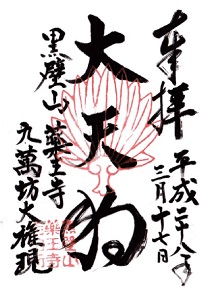 奉拝
平成二十八年
三月十七日
大天狗
黒壁山 薬王寺
九萬坊大権現
黒壁山
薬王寺